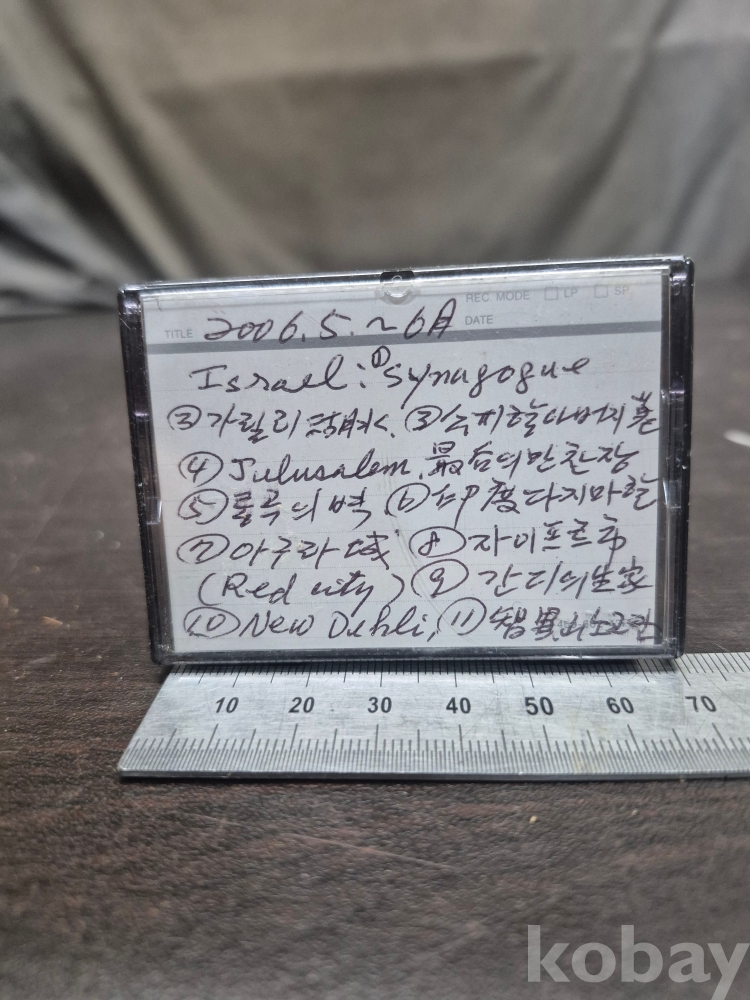 REC. MODE □ LP □ SP
TITLE 2006.5.~6月 DATE
Israel: ① Synagogue
③ 가릴리 ③
④ Julusalem. 最后의만찬장
⑤ 통곡의벽 ⑥ 印度다지마할
⑦ 아구라城 ⑧ 자이프르市
(Red city) ⑨ 간디의生家
⑩ New Dehli, ⑪
10 20 30 40 50 60 70
kobay